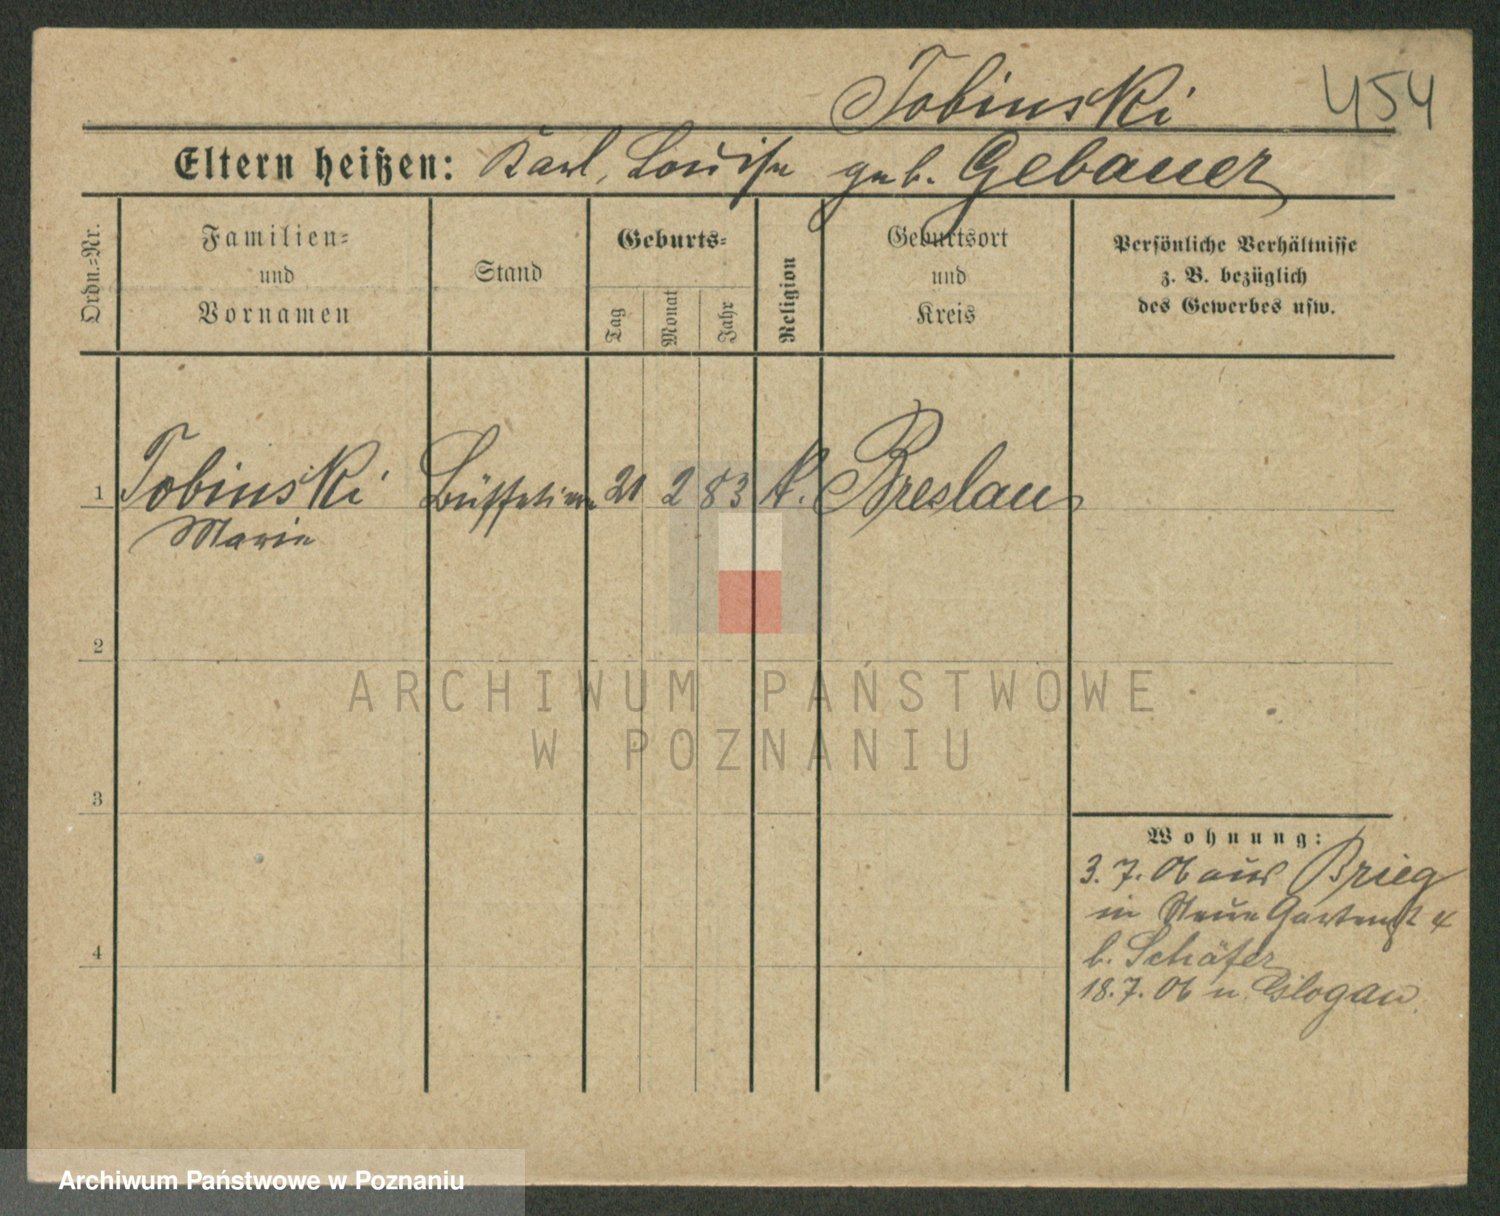 Tobinski 454
Eltern heißen: Karl, Louise geb. Gebauer
Ordn.=Nr.
Familien=
und
Vornamen
Stand
Geburts=
Tag
Monat
Jahr
Religion
Geburtsort
und
Kreis
Persönliche Verhältnisse
z. B. bezüglich
des Gewerbes usw.
1 Tobinski Büffetiere 21 2 83 k. Breslau
Marie
2
3
4
Wohnung:
3. 7. 06 aus Brieg
in Neue Gartenst 4
b. Schäfer
18. 7. 06 n. Glogau.
ARCHIWUM PAŃSTWOWE
W POZNANIU
Archiwum Państwowe w Poznaniu